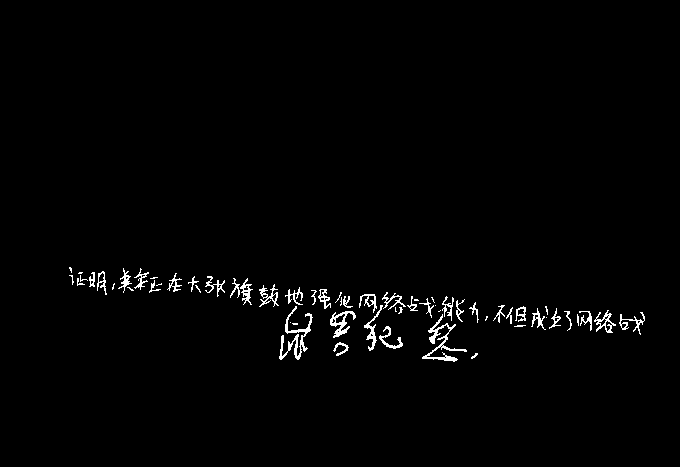 证明,美军正在大张旗鼓地强化网络战能力,不但成立了网络战
鼠 犯